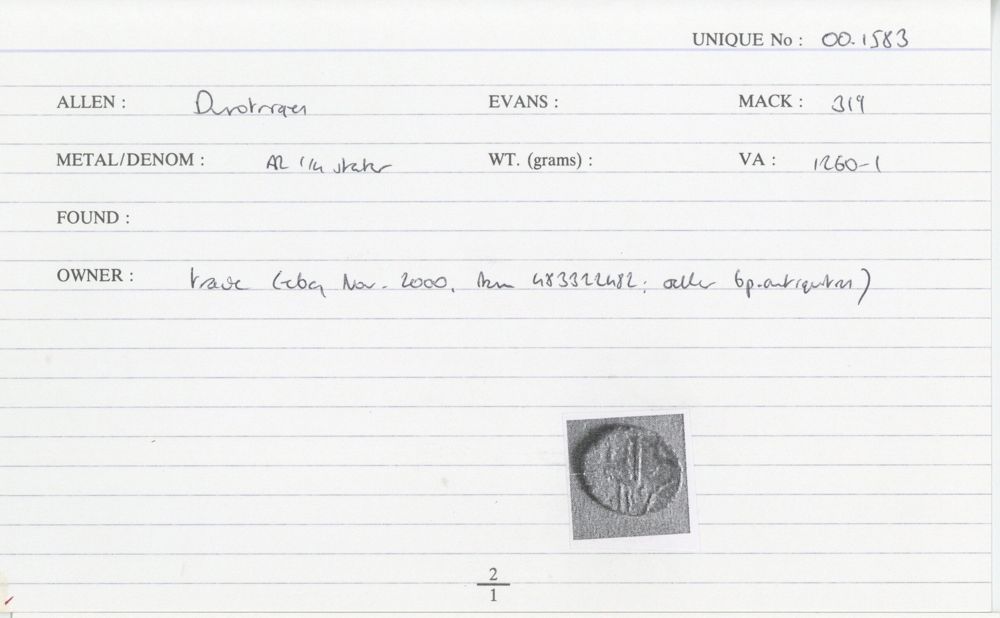 UNIQUE No : 00.1583
ALLEN : Durotriges EVANS : MACK : 319
METAL/DENOM : AR 1/4 stater WT. (grams) : VA : 1260-1
FOUND :
OWNER : trade (eBay Nov. 2000, item 483322482; seller bp.antiquities)
2
1